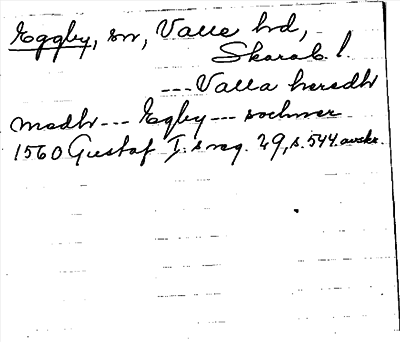 Eggby, sn, Valle hd,
Skarab. l.
--- Valla heredh
medh --- Egby --- sochner
1560 Gustaf I:s reg. 29, s. 544. avskr.